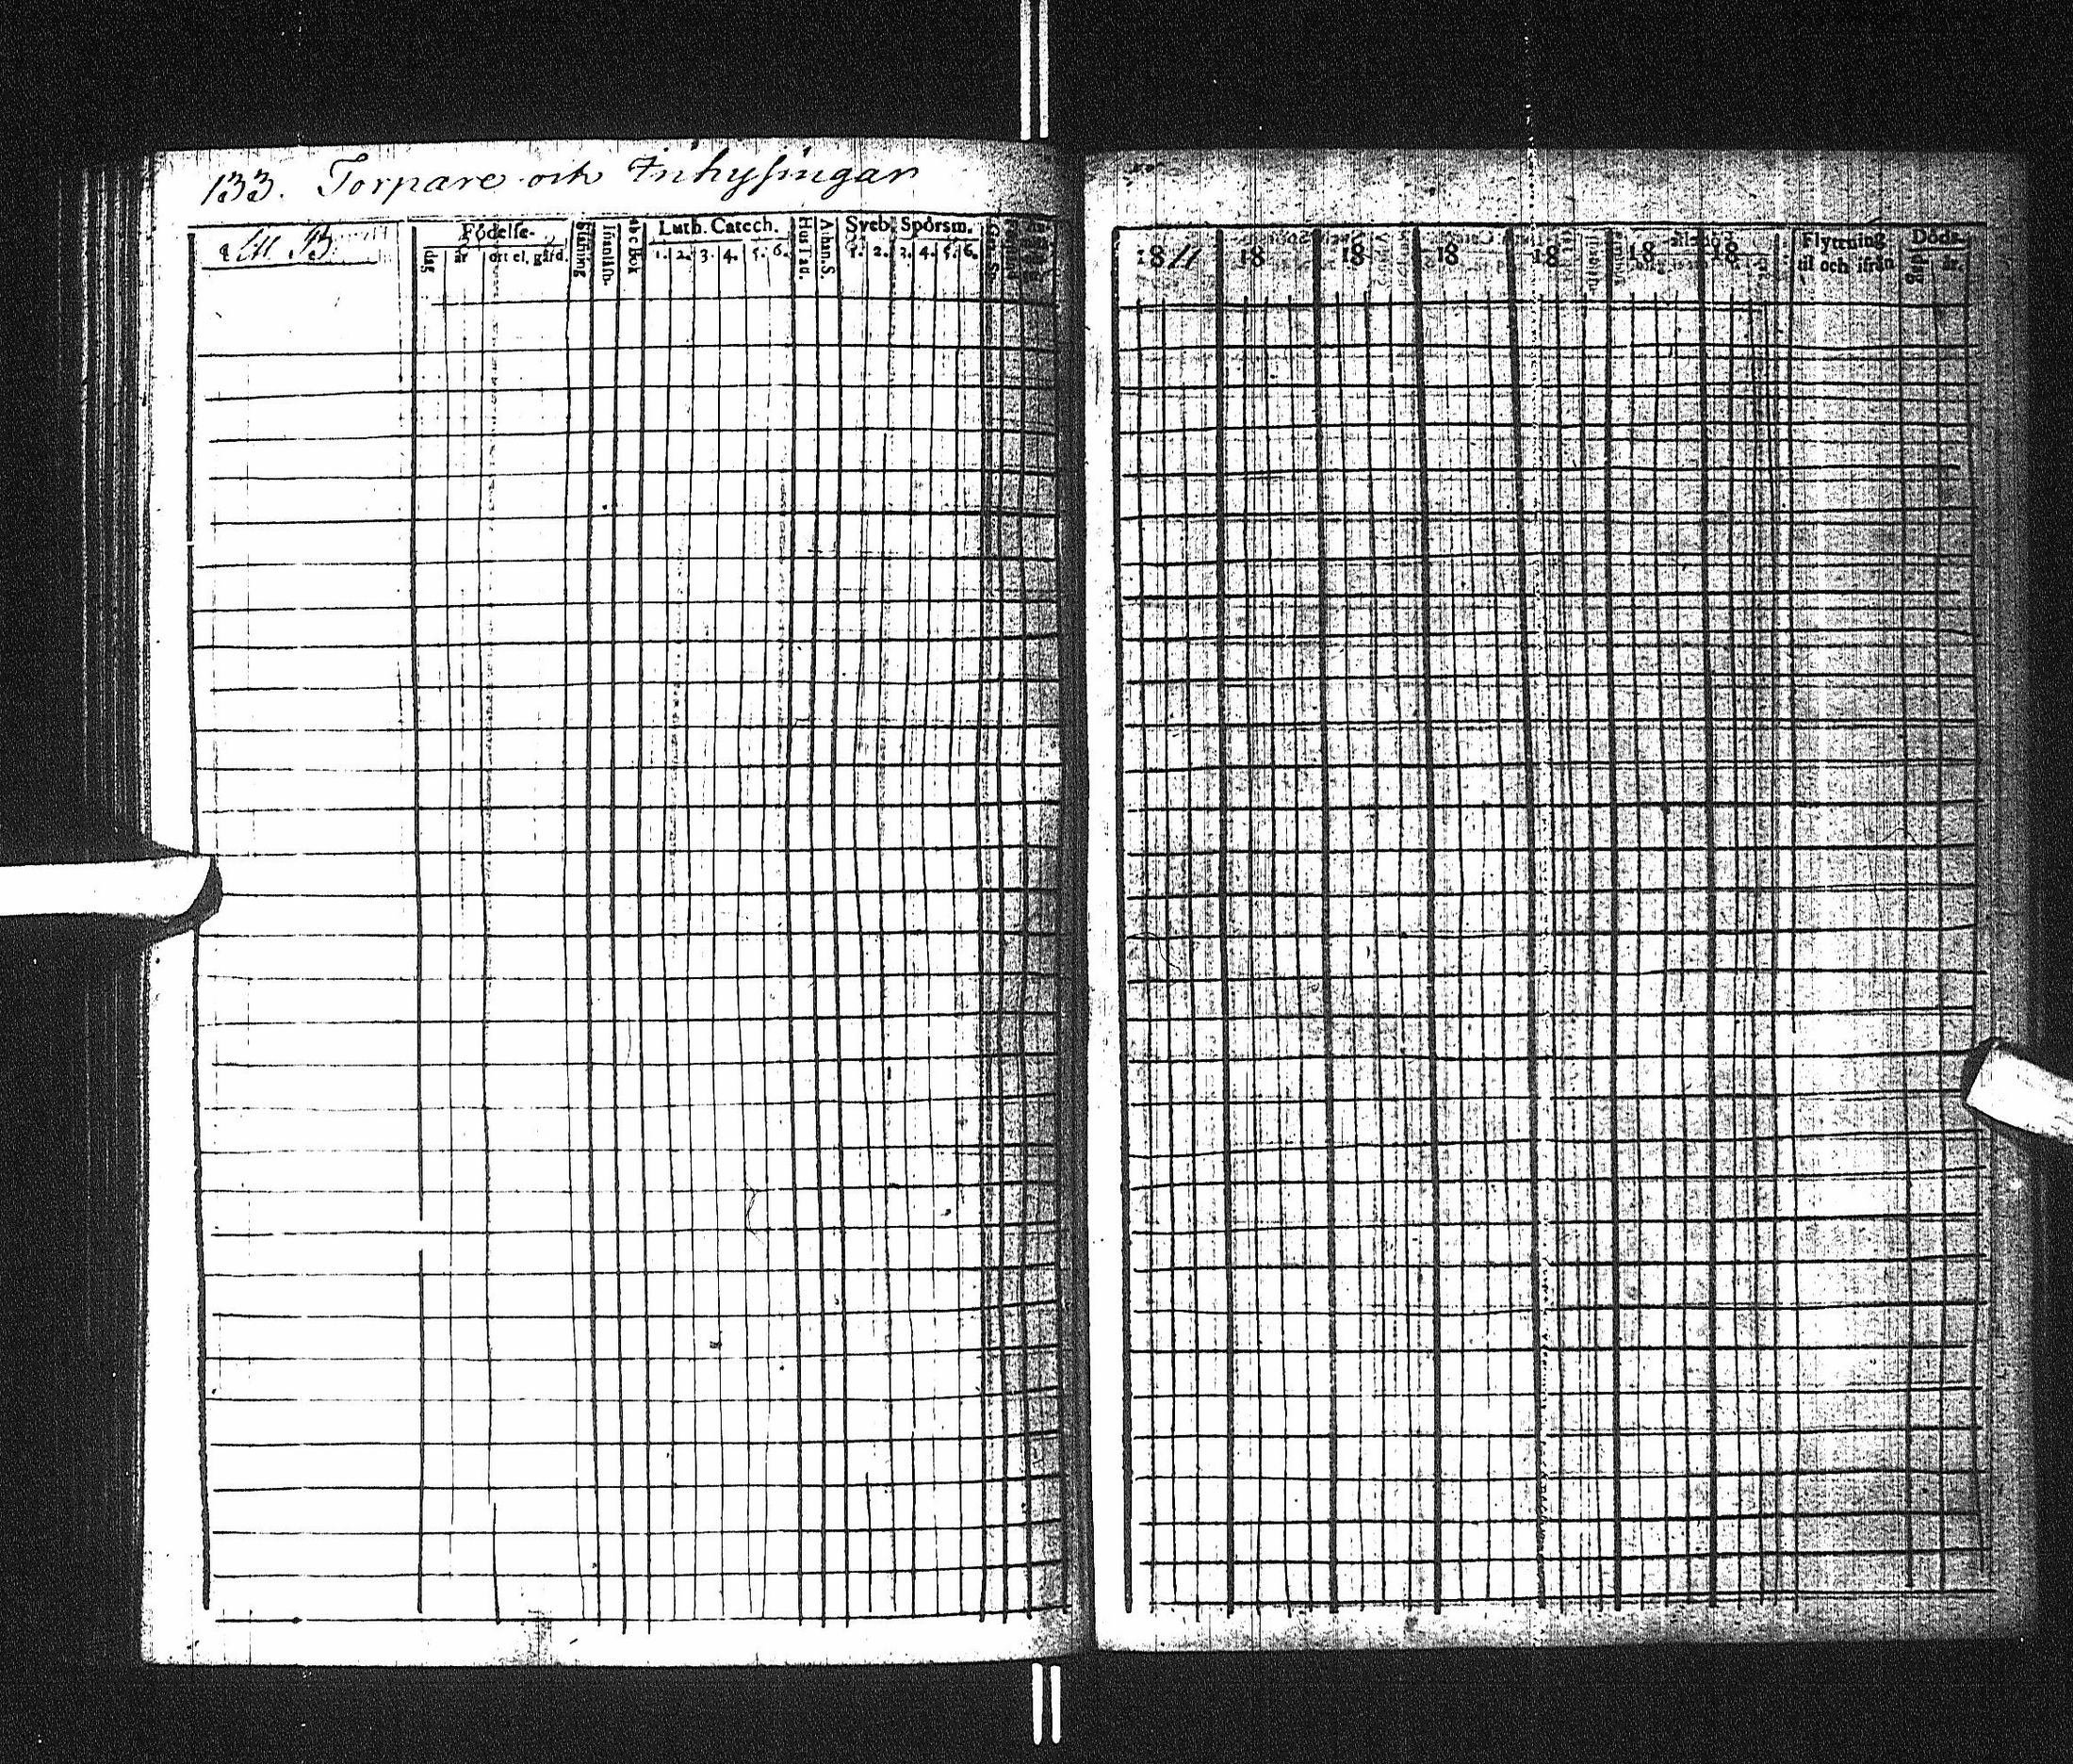 133. Torpare och Inhysingar
Födelse-
dag
år
ort el. gård.
abc Bok
Luth. Catech.
1. 2. 3. 4. 5. 6.
Hustafl.
Athan. S.
Sveb. Spörsm.
1. 2. 3. 4. 5. 6.
1811
18
18
18
18
18
18
Flyttning
til och ifrån
Döds-
dag
år.